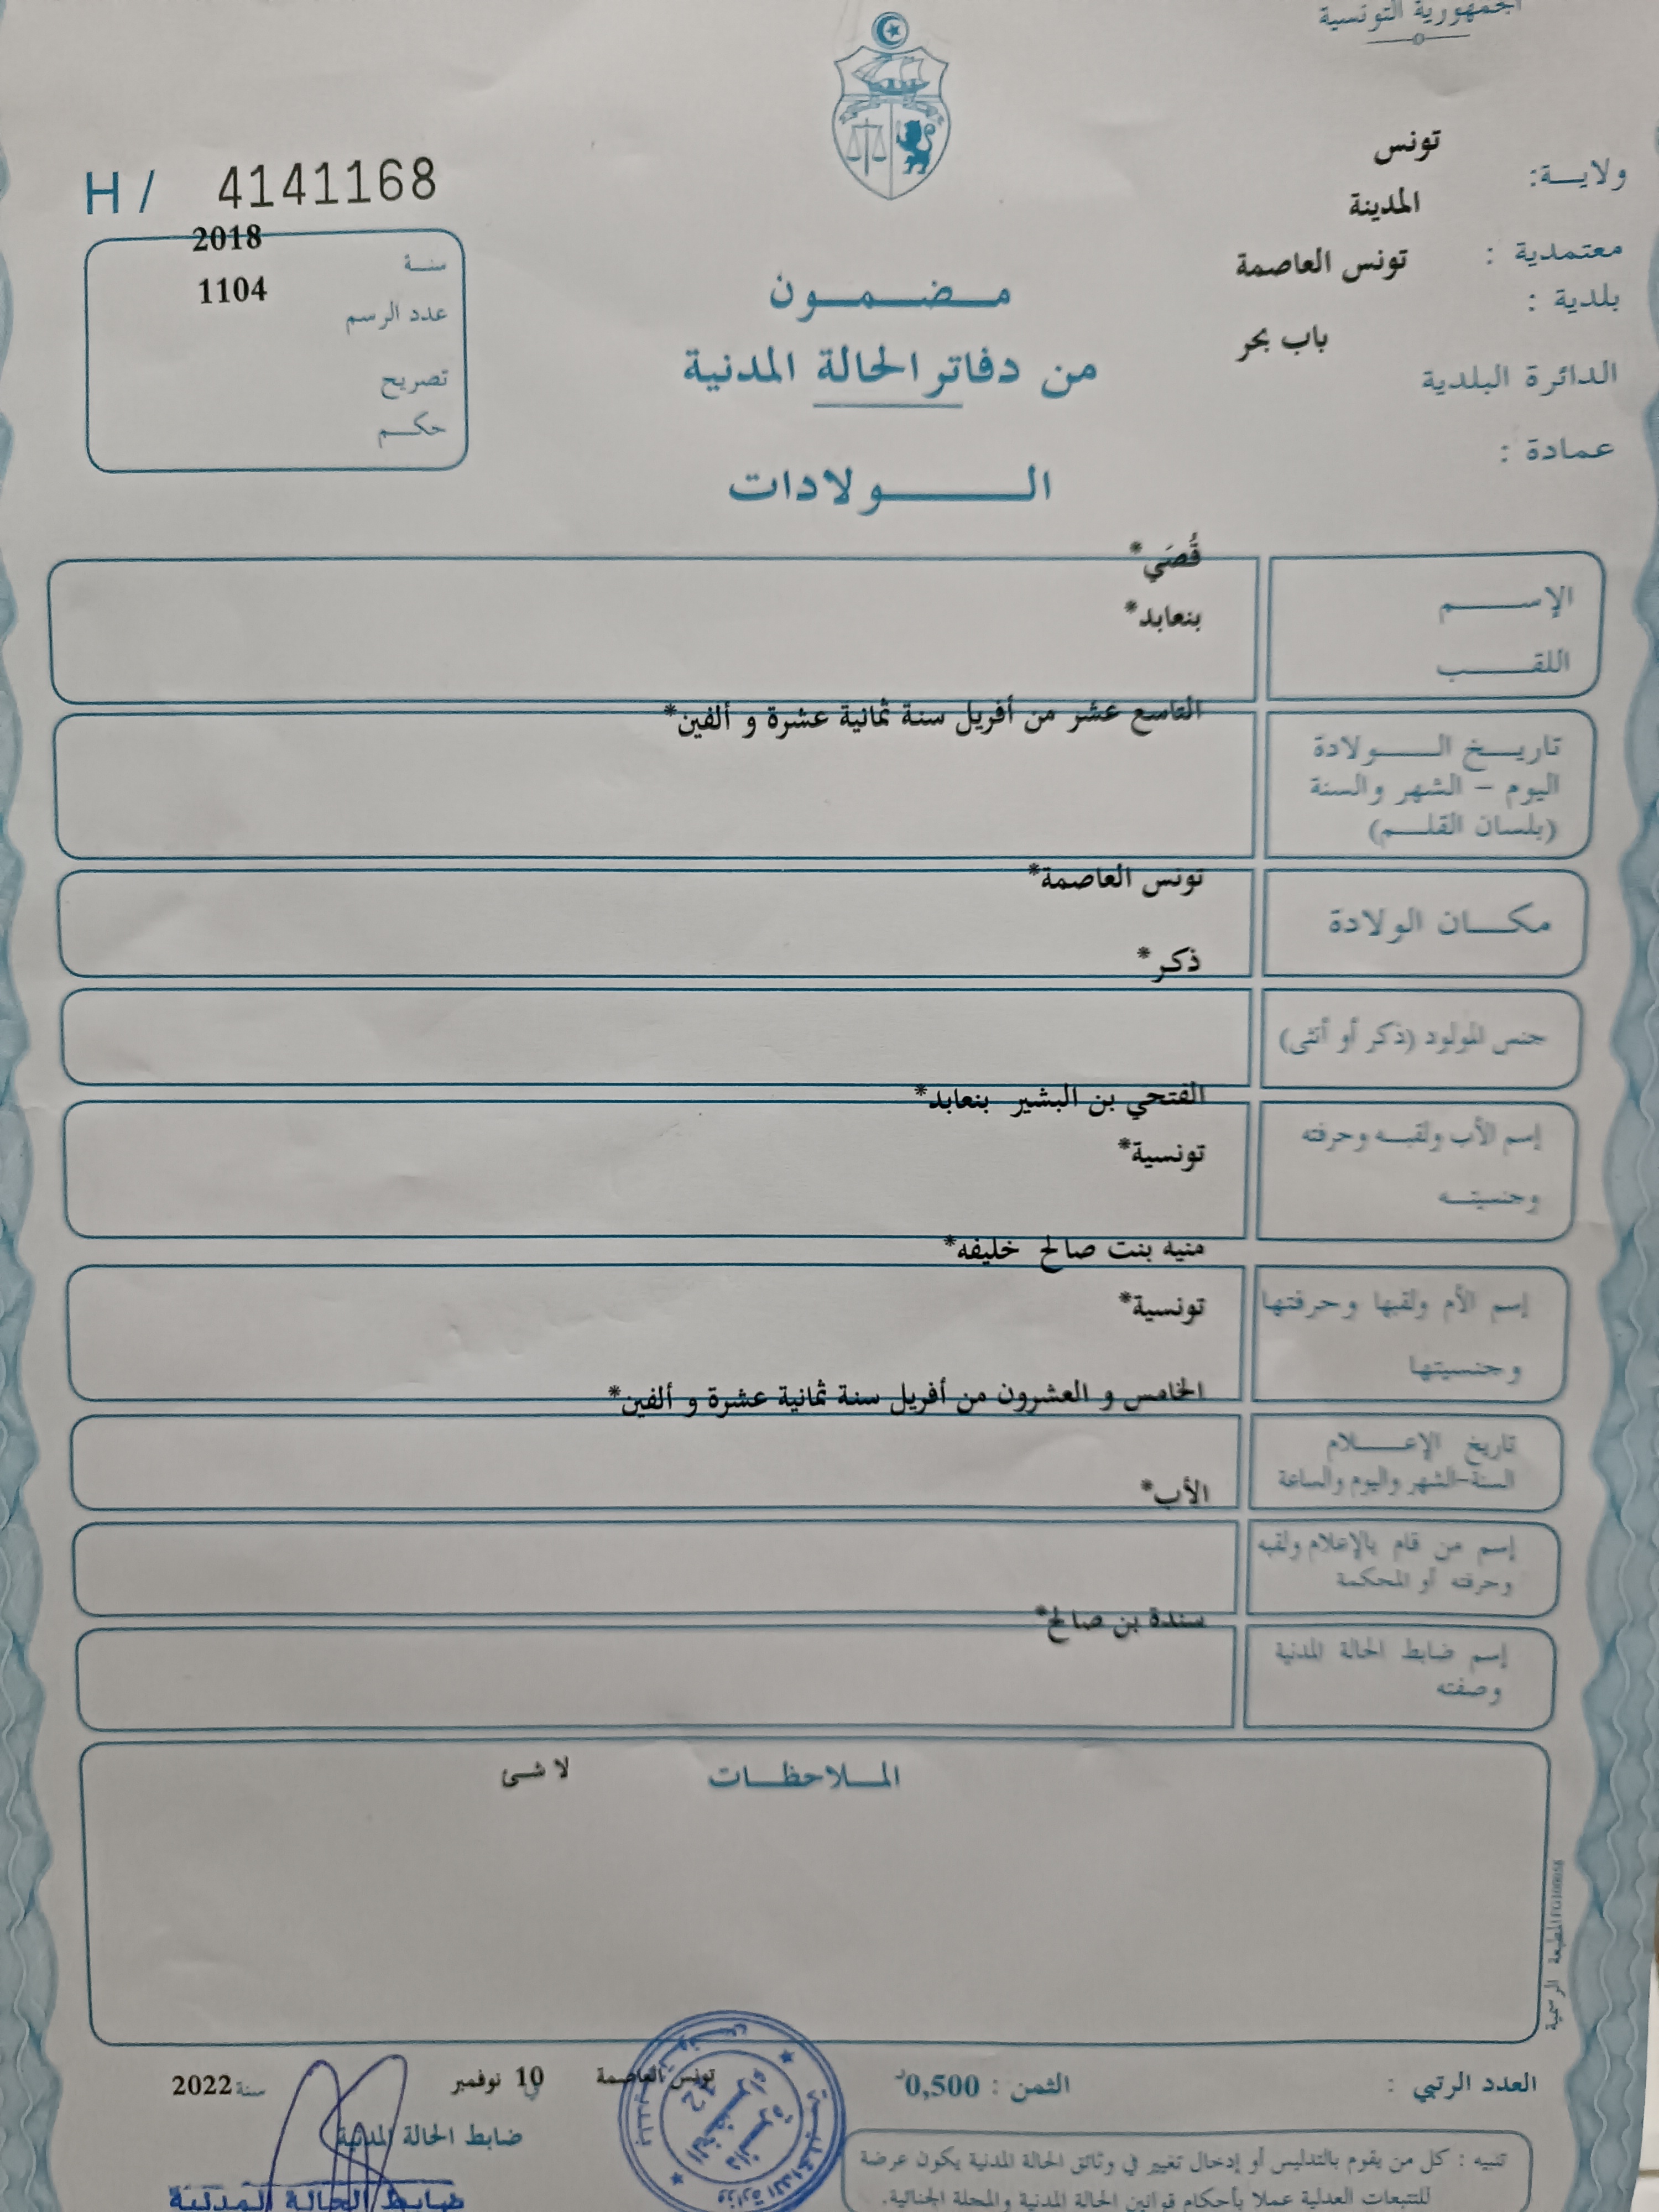 الجمهورية التونسية
ولايـــة:
تونس
المدينة
معتمدية :
تونس العاصمة
بلدية :
باب بحر
الدائرة البلدية
عمادة :
H / 4141168
2018
سنـة
1104
عدد الرسم
تصريح
حكـــم
مـــضـــمـــون
من دفاتر الحالة المدنية
الـــــولادات
قُصَي*
الإســـــم
بنعابد*
اللقـــــب
التاسع عشر من أفريل سنة ثمانية عشرة و ألفين*
تاريـــخ الـــــولادة
اليوم – الشهر والسنة
(بلسان القلـــم)
تونس العاصمة*
مكـــان الولادة
ذكر*
جنس المولود (ذكر أو أنثى)
الفتحي بن البشير بنعابد*
إسم الأب ولقبـــه وحرفته
تونسية*
وجنسيتـــه
منيه بنت صالح خليفه*
إسم الأم ولقبها وحرفتها
تونسية*
وجنسيتها
الخامس و العشرون من أفريل سنة ثمانية عشرة و ألفين*
تاريخ الإعـــــلام
السنة-الشهر واليوم والساعة
الأب*
إسم من قام بالإعلام ولقبه
وحرفته أو المحكمة
سندة بن صالح*
إسم ضابط الحالة المدنية
وصفته
الملاحظـــات
لا شئ
المطبعة الرسمية
العدد الرتبي :
الثمن : 0,500د
تونس العاصمة
في 10 نوفمبر
سنة 2022
ضابط الحالة المدنية
ضابط الحالة المدنية
تنبيه : كل من يقوم بالتدليس أو إدخال تغيير في وثائق الحالة المدنية يكون عرضة
للتتبعات العدلية عملا بأحكام قوانين الحالة المدنية والمجلة الجنائية.